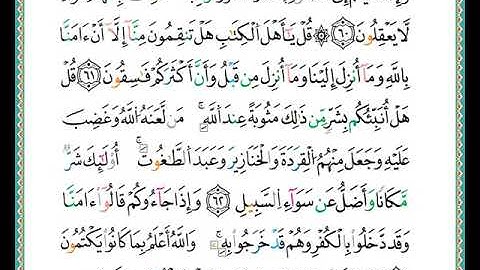 لَّا يَعْقِلُونَ ﴿٦٠﴾ قُلْ يَـٰٓأَهْلَ ٱلْكِتَـٰبِ هَلْ تَنقِمُونَ مِنَّآ إِلَّآ أَنْ ءَامَنَّا
بِٱللَّهِ وَمَآ أُنزِلَ إِلَيْنَا وَمَآ أُنزِلَ مِن قَبْلُ وَأَنَّ أَكْثَرَكُمْ فَـٰسِقُونَ ﴿٦١﴾ قُلْ
هَلْ أُنَبِّئُكُم بِشَرٍّ مِّن ذَٰلِكَ مَثُوبَةً عِندَ ٱللَّهِ ۚ مَن لَّعَنَهُ ٱللَّهُ وَغَضِبَ
عَلَيْهِ وَجَعَلَ مِنْهُمُ ٱلْقِرَدَةَ وَٱلْخَنَازِيرَ وَعَبَدَ ٱلطَّـٰغُوتَ ۚ أُو۟لَـٰٓئِكَ شَرٌّ
مَّكَانًا وَأَضَلُّ عَن سَوَآءِ ٱلسَّبِيلِ ﴿٦٢﴾ وَإِذَا جَآءُوكُمْ قَالُوٓا۟ ءَامَنَّا
وَقَد دَّخَلُوا۟ بِٱلْكُفْرِ وَهُمْ قَدْ خَرَجُوا۟ بِهِۦ ۚ وَٱللَّهُ أَعْلَمُ بِمَا كَانُوا۟ يَكْتُمُونَ